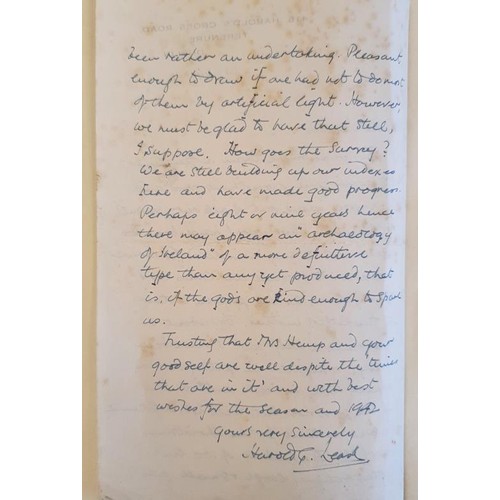 been rather an undertaking. Pleasant
enough to draw if one had not to do most
of them by artificial light. However
we must be glad to have that still,
I suppose. How goes the Survey?
We are still building up our indexes
here and have made good progress.
Perhaps eight or nine years hence
there may appear an "archaeology
of Ireland" of a more definitive
type than any yet produced, that
is, if the gods are kind enough to spare
us.
Trusting that Mrs Hemp and your
good self are well despite the 'times
that are in it' and with best
wishes for the season and 1942
Yours very sincerely
Harold G. Leask